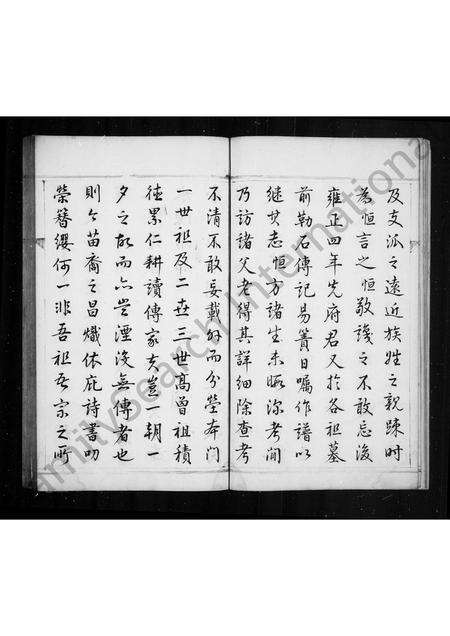 及支派之遠近族姓之親疎時
為恒言之恒敬識之不敢忘後
雍正四年先府君又於各祖墓
前勒石傳記易簀日囑作譜以
继其志恒方諸生未暇深考閒
乃訪諸父老得其詳細除查考
不清不敢妄載外而分塋本门
一世祖及二世三世髙曾祖積
德累仁耕讀傳家夫豈一朝一
夕之故而亦豈湮沒無傳者也
則今苗裔之昌熾依庇詩書叨
榮簪纓何一非吾祖吾宗之所
FamilySearch International